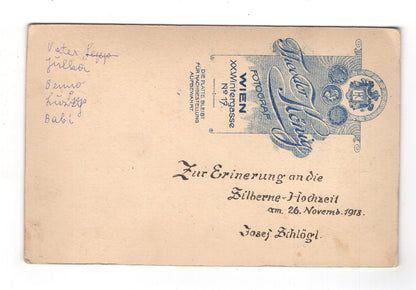 Vater Seppp
Jullca
Benno
Luzy
Babi
Theodor König
FOTOGRAF
WIEN
XX.Wintergasse
No 17
DIE PLATTE BLEIBT
FÜR NACHBESTELLUNG
AUFBEWAHRT
Zur Erinerung an die
Silberne-Hochzeit
am. 26. Novemb. 1918.
Josef Schlögl.